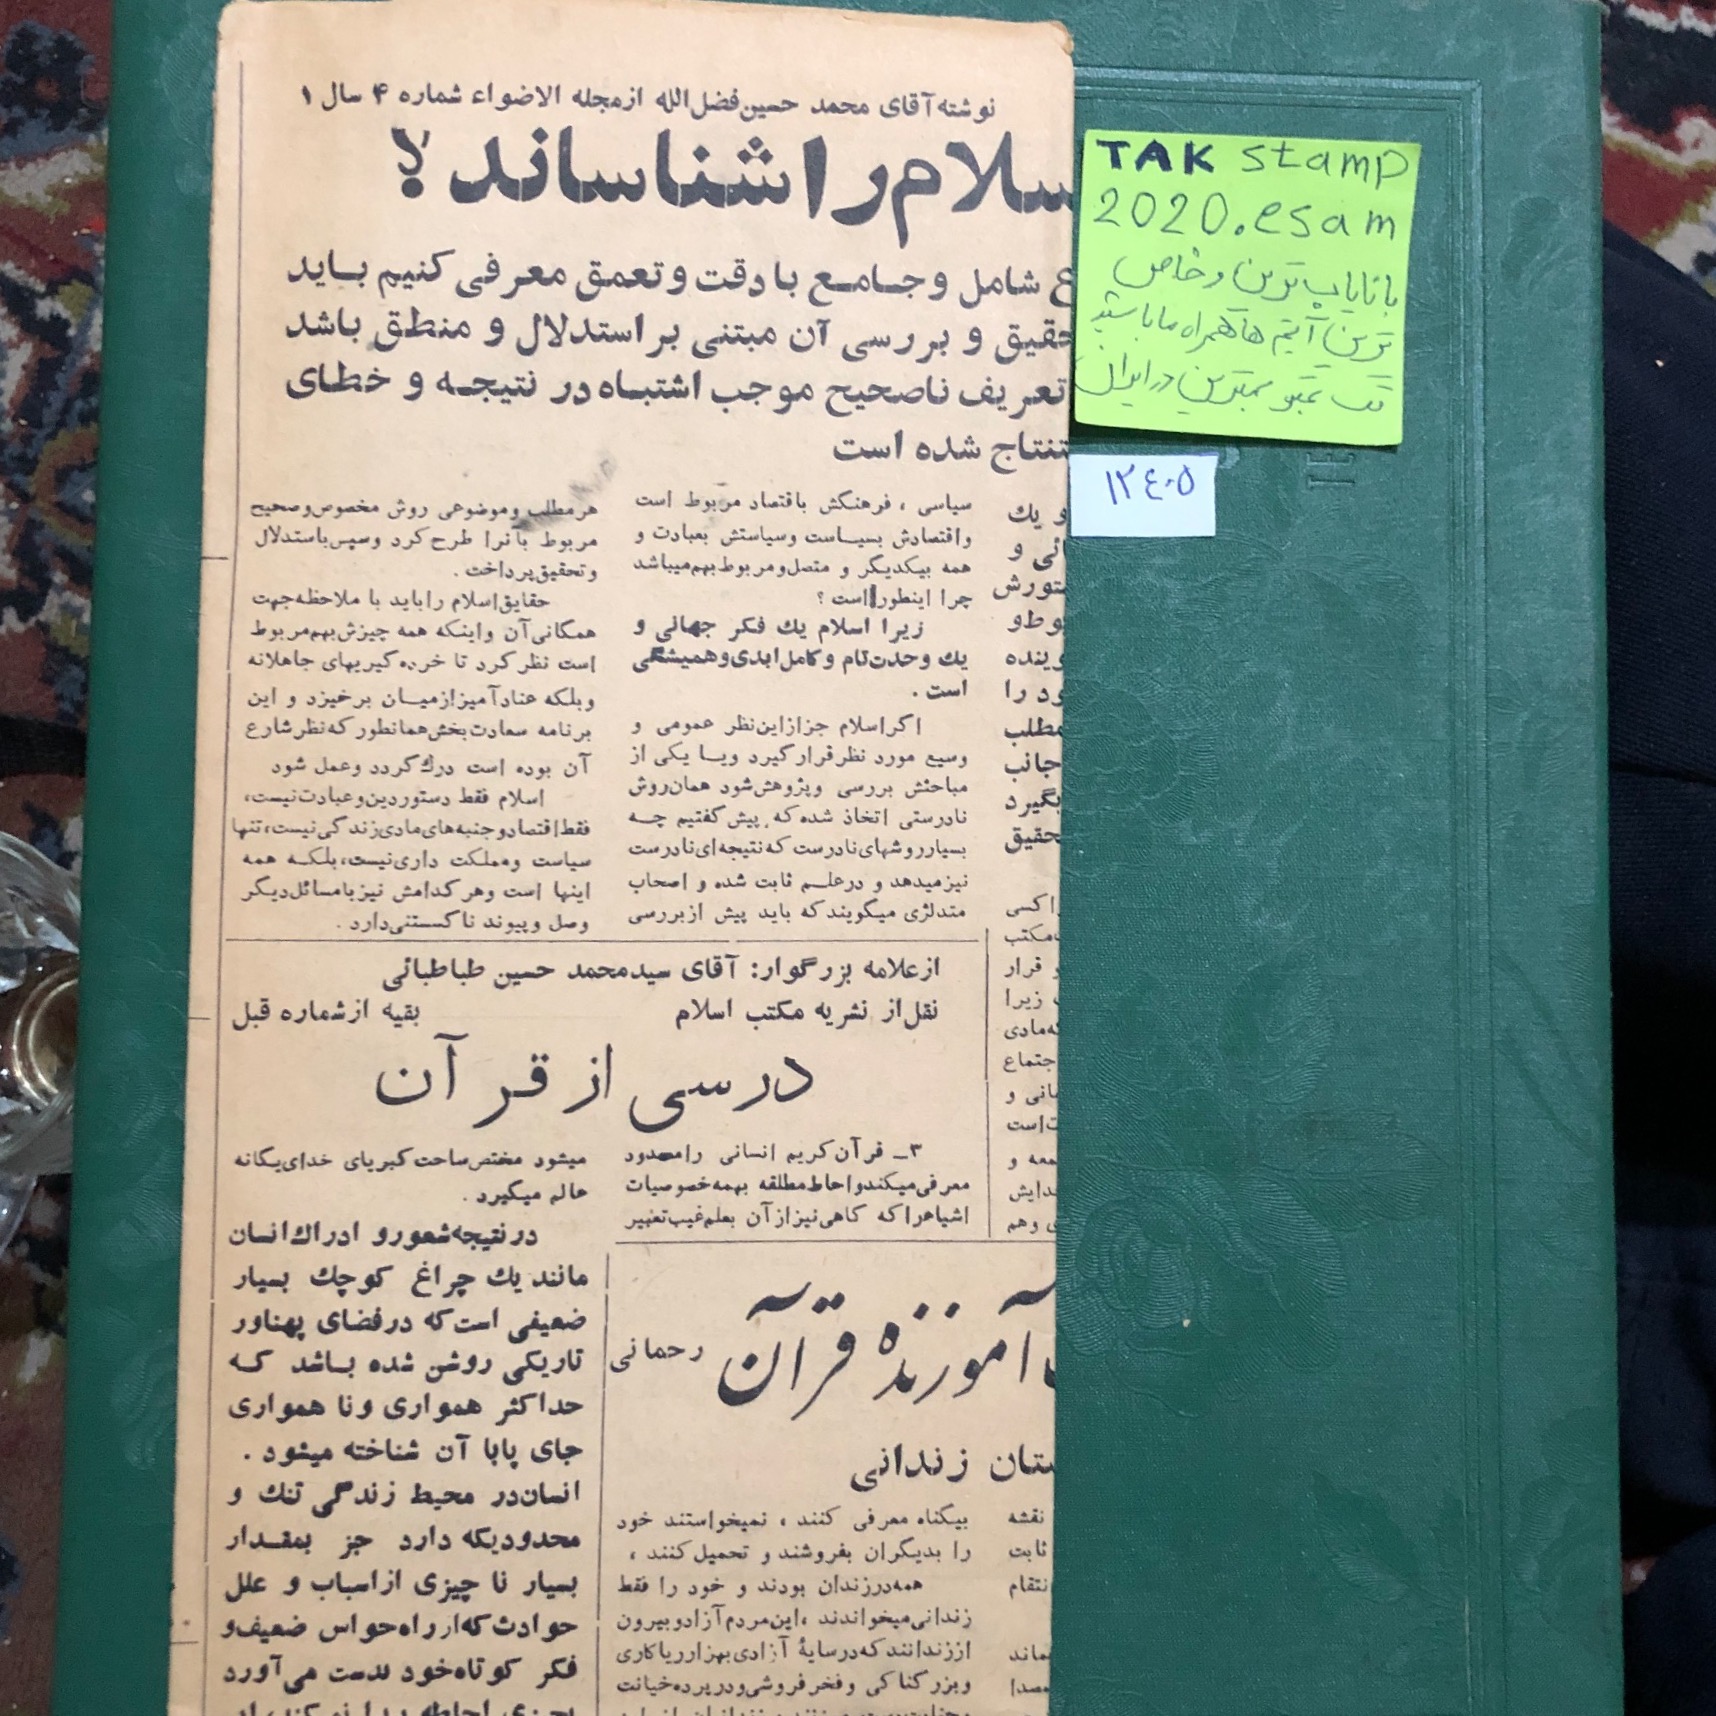 نوشته آقای محمد حسین فضل‌الله از مجله الاضواء شماره ۴ سال ۱
سلام را شناساند؟
شامل و جامع با دقت و تعمق معرفی کنیم باید
حقیق و بررسی آن مبتنی بر استدلال و منطق باشد
تعریف ناصحیح موجب اشتباه در نتیجه و خطای
تنتاج شده است
و یك
ائی و
ستورش
بوط و
وینده
ود را
مطلب
جانب
بگیرد
حقیق
سیاسی ، فرهنگش باقتصاد مربوط است
واقتصادش بسیاست وسیاستش بعبادت و
همه بیکدیگر و متصل ومربوط بهم میباشد
چرا اینطور است ؟
زیرا اسلام یك فکر جهانی و
یك وحدت تام و کامل ابدی و همیشگی
است .
اگر اسلام جز از این نظر عمومی و
وسیع مورد نظر قرار گیرد ویا یکی از
مباحثش بررسی وپژوهش شود همان روش
نادرستی اتخاذ شده که پیش گفتیم چه
بسیار روشهای نادرست که نتیجه‌ای نادرست
نیز میدهد و در علم ثابت شده و اصحاب
متدلژی میگویند که باید پیش از بررسی
هر مطلب وموضوعی روش مخصوص وصحیح
مربوط بآنرا طرح کرد وسپس باستدلال
وتحقیق پرداخت .
حقایق اسلام را باید با ملاحظه جهت
همگانی آن واینکه همه چیزش بهم مربوط
است نظر کرد تا خرده گیریهای جاهلانه
وبلکه عناد آمیز از میان برخیزد و این
برنامه سعادت بخش همانطور که نظر شارع
آن بوده است درك گردد وعمل شود
اسلام فقط دستور دین وعبادت نیست،
فقط اقتصاد و جنبه‌های مادی زندگی نیست، تنها
سیاست ومملکت داری نیست، بلکه همه
اینها است وهر کدامش نیز با مسائل دیگر
وصل و پیوند ناگسستنی دارد .
اکسی
مکتب
و قرار
زیرا
که مادی
جتماع
انی و
است
معه و
دایش
وهم
از علامه بزرگوار: آقای سید محمد حسین طباطبائی
نقل از نشریه مکتب اسلام
بقیه از شماره قبل
درسی از قرآن
۳ـ قرآن کریم انسانی را محدود
معرفی میکند و احاطه مطلقه بهمه خصوصیات
اشیاء را که گاهی نیز از آن بعلم غیب تعبیر
میشود مختص ساحت کبریای خدای یگانه
عالم میگیرد .
در نتیجه شعور و ادراك انسان
مانند یك چراغ کوچك بسیار
ضعیفی است که در فضای پهناور
تاریکی روشن شده باشد که
حداکثر همواری و نا همواری
جای پابا آن شناخته میشود .
انسان در محیط زندگی تنك و
محدودیکه دارد جز بمقدار
بسیار نا چیزی از اسباب و علل
حوادث که از راه حواس ضعیف و
فکر کوتاه خود بدست می آورد
آموزنده قرآن
رحمانی
ستان زندانی
نقشه
ثابت
نتقام
نماند
مصدا
بیگناه معرفی کنند ، نمیخواستند خود
را بدیگران بفروشند و تحمیل کنند ،
همه در زندان بودند و خود را فقط
زندانی میخواندند ، این مردم آزاد و بیرون
از زندانند که در سایهٔ آزادی بهزار ریاکاری
وبزرگی و فخر فروشی و در پرده خیانت
TAK stamp
2020.esam
با نایاب ترین و خاص
ترین آیتم ها همراه ما باشید
تک تمبر بهترین در ایران
۱۲۴۰۵